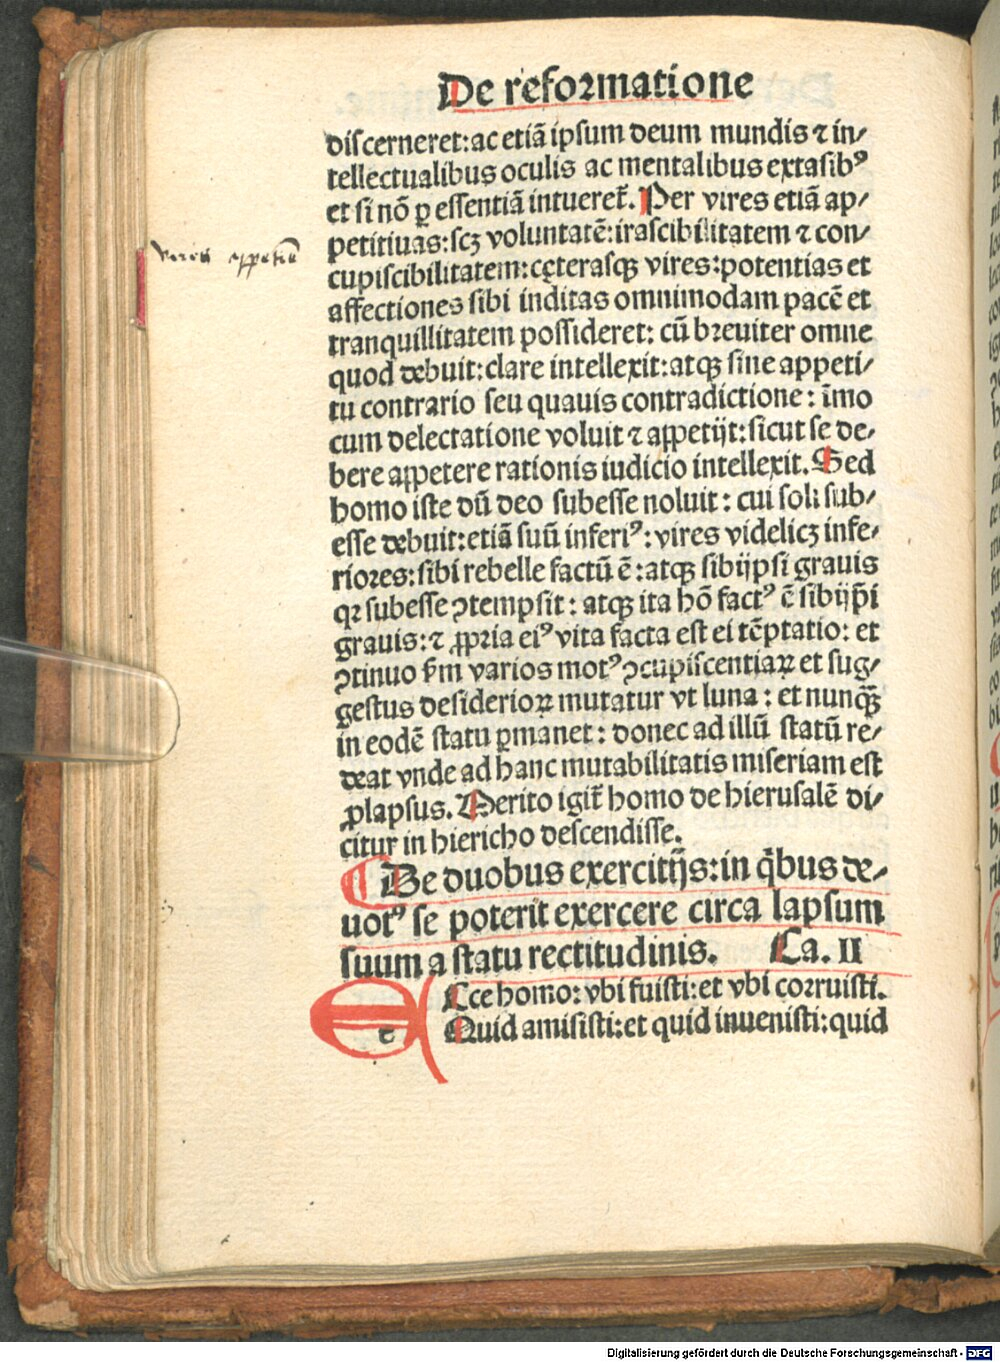 De reformatione
discerneret: ac etiã ipsum deum mundis ⁊ in/
tellectualibus oculis ac mentalibus extasibꝰ
et si nõ ꝑ essentiã intueret̃. Per vires etiã ap/
petitiuas: scꝫ voluntatẽ: irascibilitatem ⁊ con/
cupiscibilitatem: cęterasqꝫ vires: potentias et
affectiones sibi inditas omnimodam pacẽ et
tranquillitatem possideret: cũ breuiter omne
quod debuit: clare intellexit: atqꝫ sine appeti/
tu contrario seu quauis contradictione: ĩmo
cum delectatione voluit ⁊ appetijt: sicut se de/
bere appetere rationis iudicio intellexit. Sed
homo iste dũ deo subesse noluit: cui soli sub/
esse debuit: etiã suũ inferiꝰ: vires videlicꝫ infe/
riores: sibi rebelle factũ ẽ: atqꝫ sibijpsi grauis
qꝛ subesse ꝯtempsit: atqꝫ ita hõ factꝰ ẽ sibijp̃i
grauis: ⁊ ꝓpria eiꝰ vita facta est ei tẽptatio: et
ꝯtinuo ẜm varios motꝰ ꝯcupiscentiaꝝ et sug/
gestus desiderioꝝ mutatur vt luna: et nunqꝫ̃
in eodẽ statu ꝑmanet: donec ad illũ statũ re/
deat vnde ad hanc mutabilitatis miseriam est
ꝓlapsus. Merito igit̃ homo de hierusalẽ di/
citur in hiericho descendisse.
De duobus exercitijs: in q̃bus de/
uotꝰ se poterit exercere circa lapsum
suum a statu rectitudinis. Ca. II
e Ecce homo: vbi fuisti: et vbi corruisti.
Quid amisisti: et quid inuenisti: quid
vires
Digitalisierung gefördert durch die Deutsche Forschungsgemeinschaft - DFG